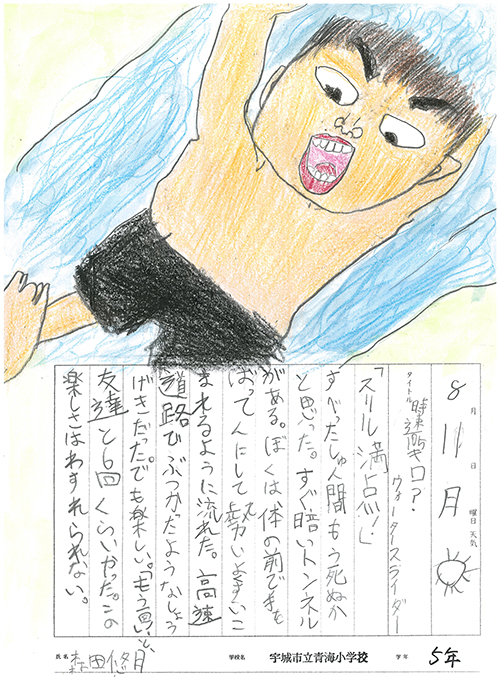 8月11日月曜日 天気
タイトル 時速105キロ？
ウォータースライダー
「スリル満点！」
すべったしゅん間もう死ぬか
と思った。すぐ暗いトンネル
がある。ぼくは体の前で手を
ばってんにして勢いよすいこ
まれるように流れた。高速
道路でぶつかだようなしょう
げきだった。でも楽しい。「もう一回」と、
友達と6回くらいいかった。この
楽しさはわすれられない。
氏名 森田悠月 学校名 宇城市立青海小学校 学年 5年